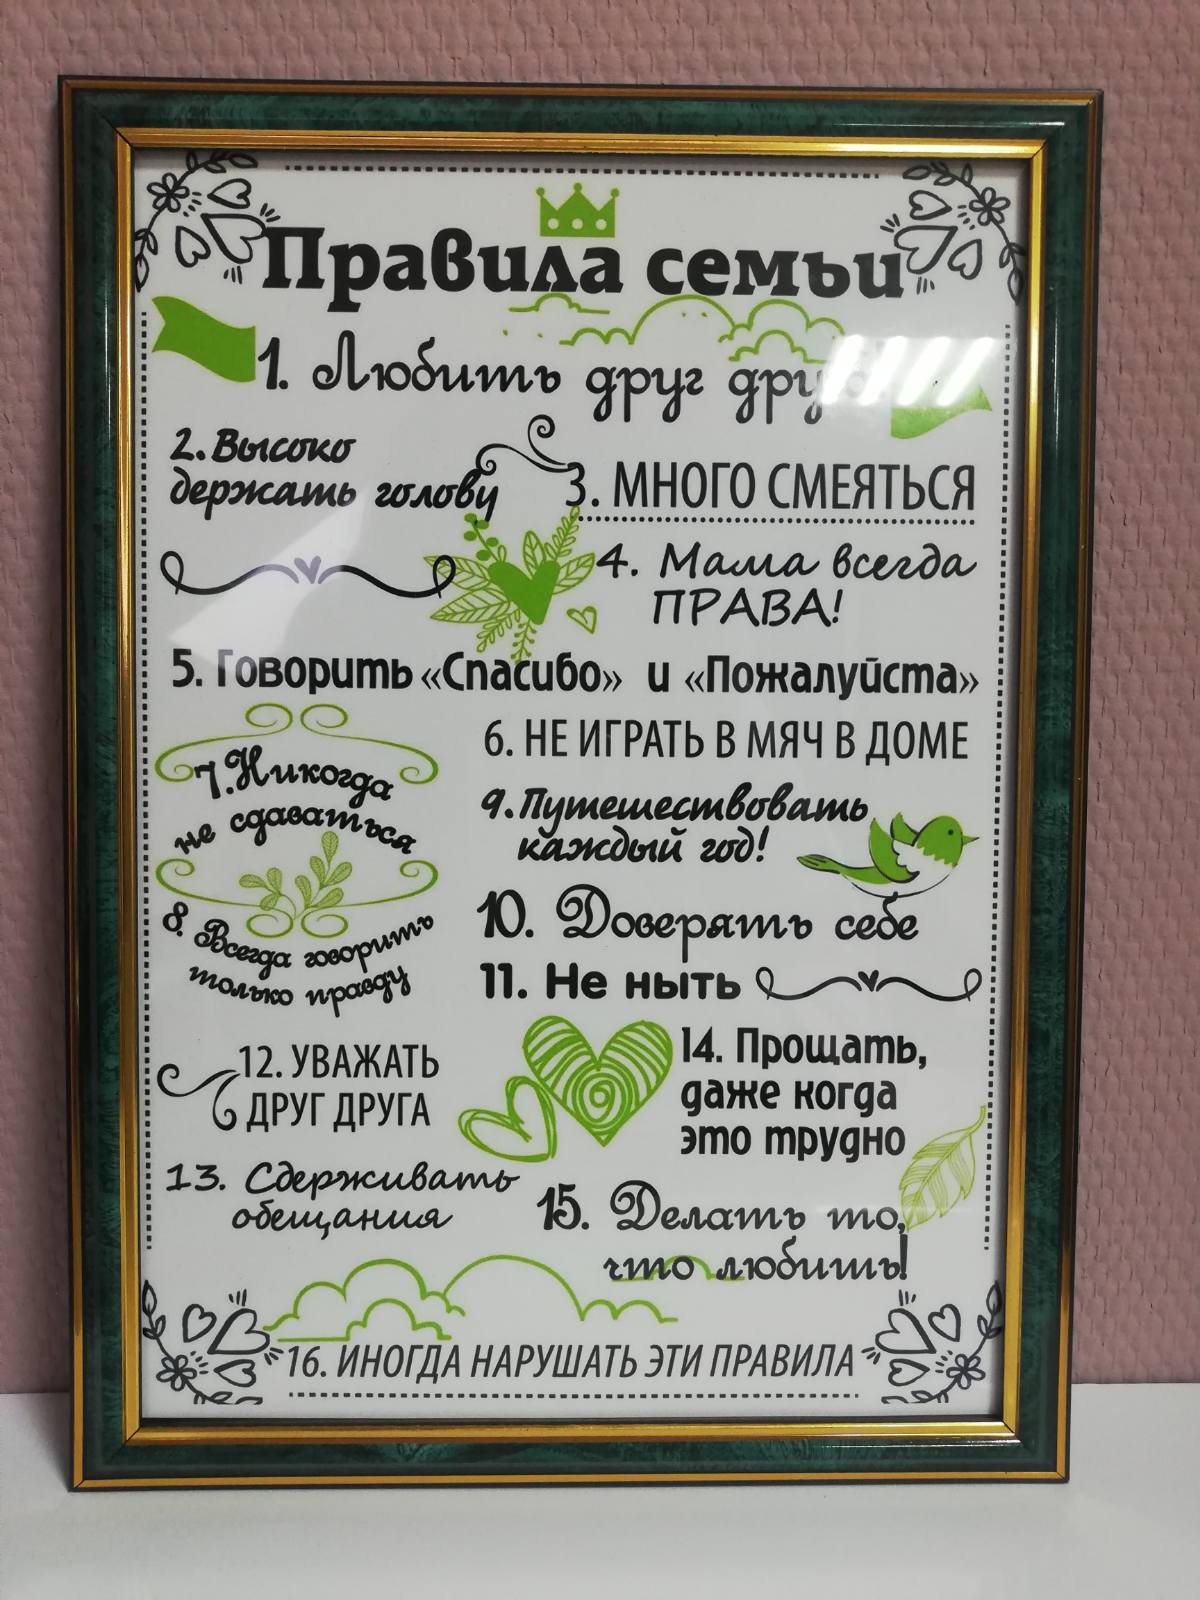 Правила семьи
1. Любить друг
2. Высоко
держать голову
3. МНОГО СМЕЯТЬСЯ
4. Мама всегда
ПРАВА!
5. Говорить «Спасибо» и «Пожалуйста»
6. НЕ ИГРАТЬ В МЯЧ В ДОМЕ
7. Никогда
не сдаваться
8. Всегда говорить
только правду
9. Путешествовать
каждый год!
10. Доверять себе
11. Не ныть
12. УВАЖАТЬ
ДРУГ ДРУГА
13. Сдерживать
обещания
14. Прощать,
даже когда
это трудно
15. Делать то,
что любить!
16. ИНОГДА НАРУШАТЬ ЭТИ ПРАВИЛА